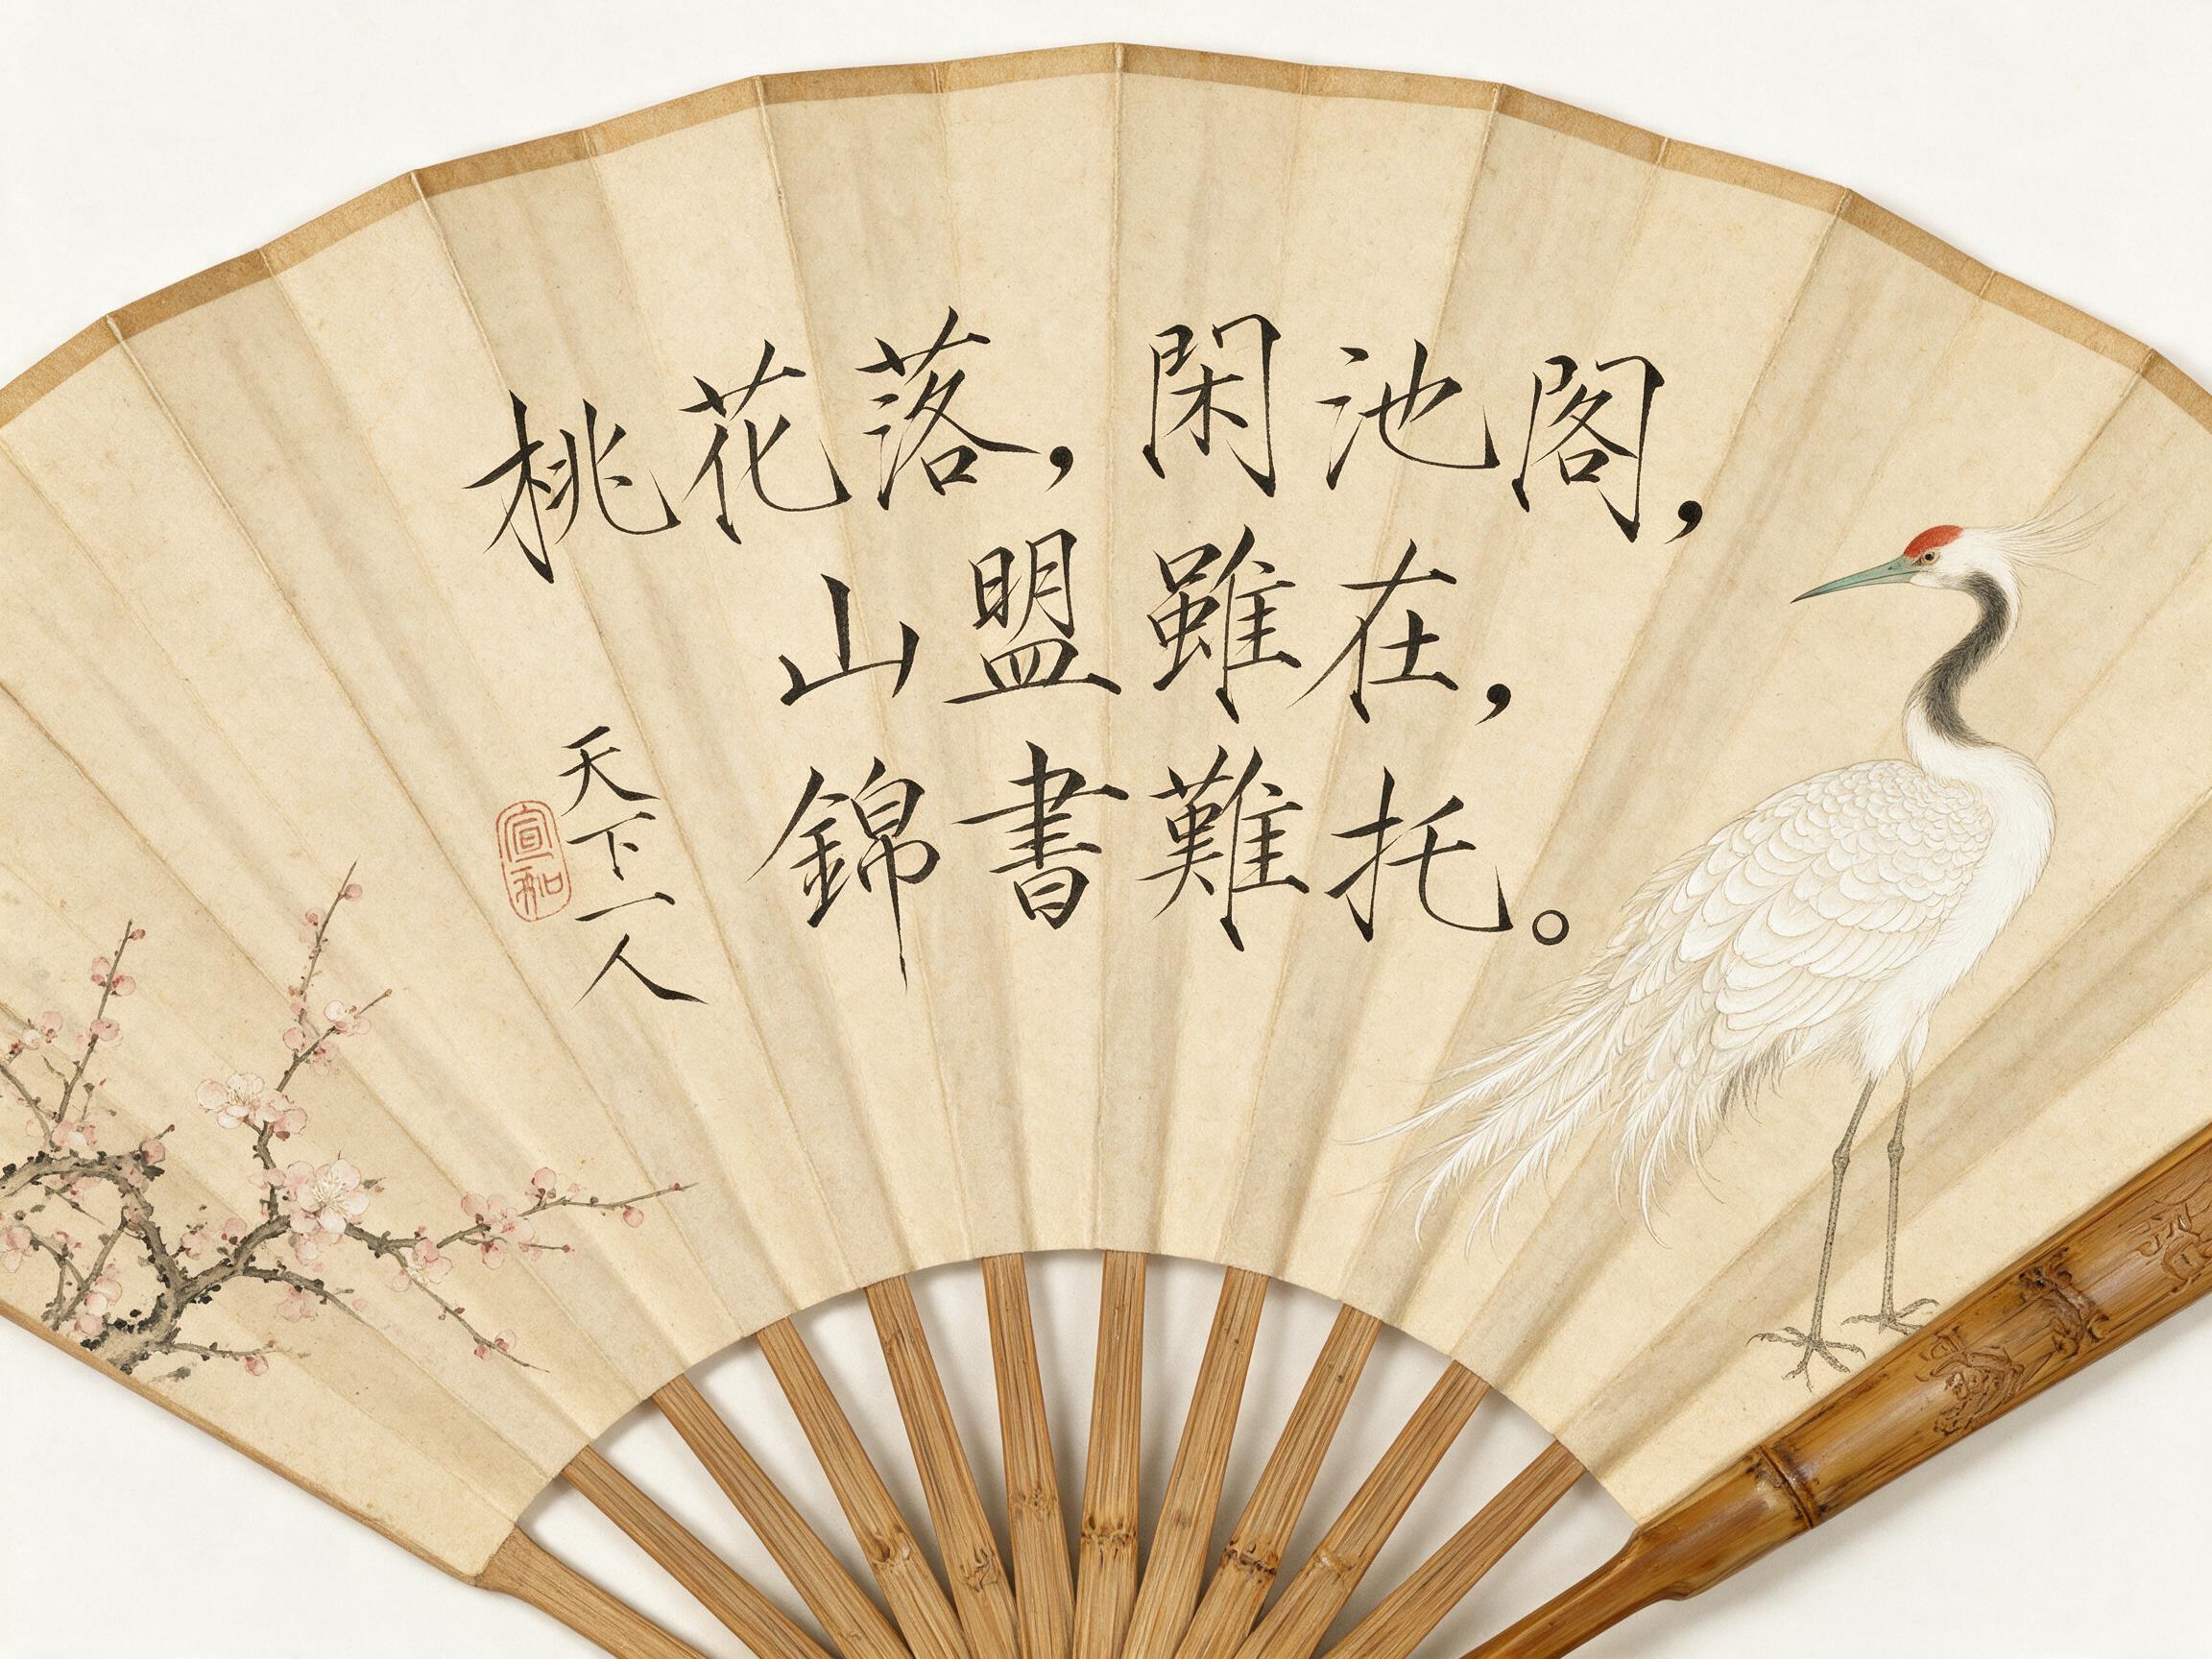 桃花落，閑池閣，
山盟雖在，
錦書難托。
天下一人
宣和